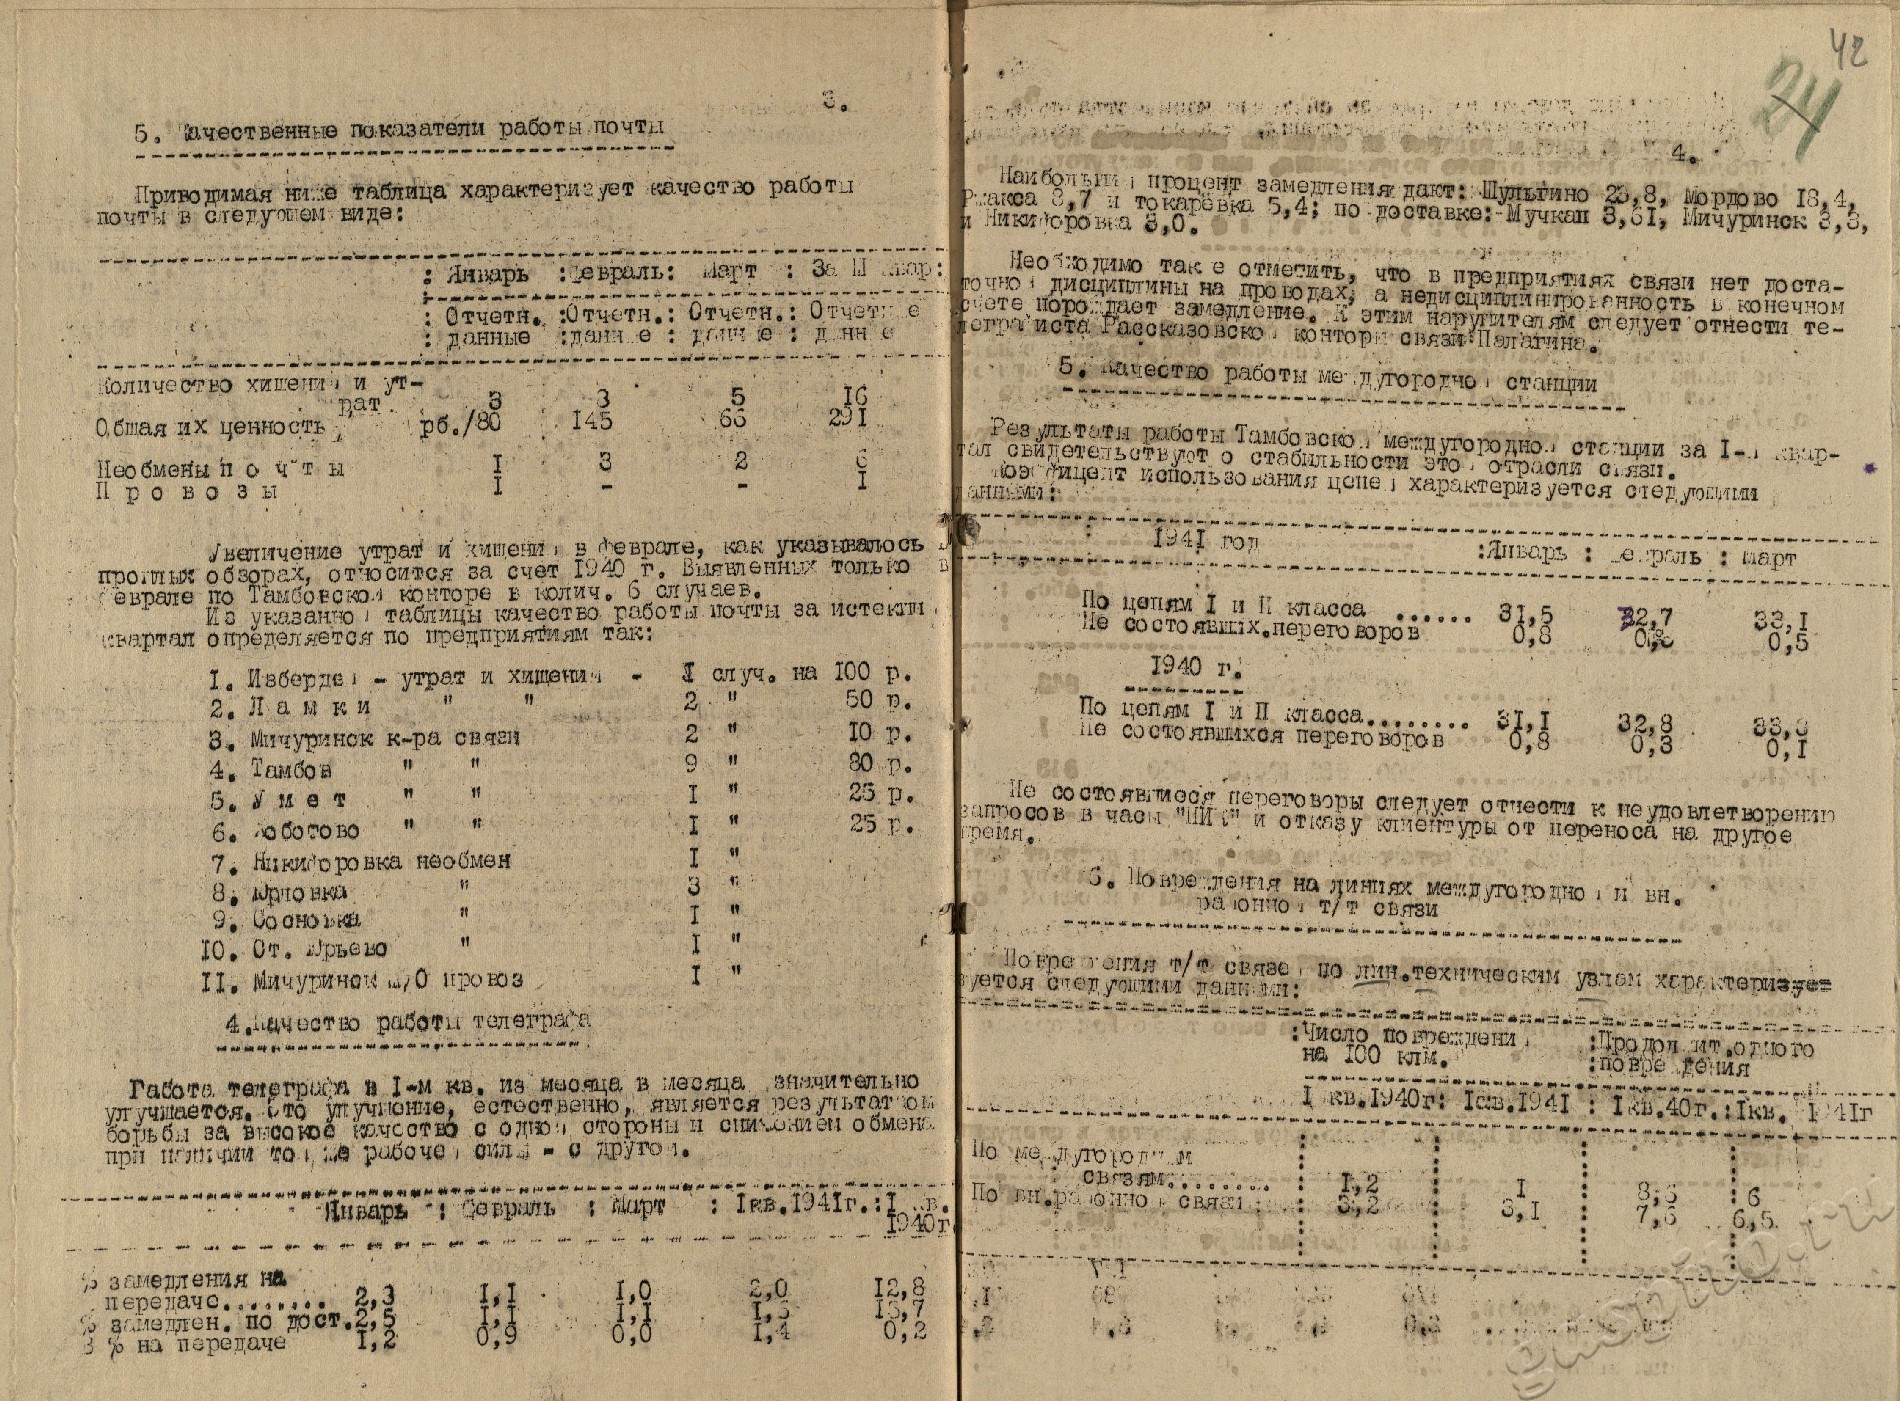 3.
5. Качественные показатели работы почты
Приводимая ниже таблица характеризует качество работы
почты в следующем виде:
: Январь :Февраль: Март : За I квар:
: Отчетн. :Отчетн.: Отчетн.: Отчетные
: данные :данные : данные : данные
Количество хищений и ут-
рат 3 3 5 16
Общая их ценность рб./80 145 66 291
Необмены п о ч т ы I 3 2 6
П р о в о з ы I - - I
Увеличение утрат и хищений в феврале, как указывалось в
прошлых обзорах, относится за счет 1940 г. Выявленных только в
феврале по Тамбовской конторе в колич. 6 случаев.
Из указанной таблицы качество работы почты за истекший
квартал определяется по предприятиям так:
I. Избердей - утрат и хищений - I случ. на 100 р.
2. Л а м к и " " 2 " 50 р.
3. Мичуринск к-ра связи 2 " 10 р.
4. Тамбов " " 9 " 80 р.
5. У м е т " " I " 25 р.
6. Хоботово " " I " 25 р.
7. Никифоровка необмен I "
8. Юрловка " 3 "
9. Сосновка " I "
10. Ст. Юрьево " I "
II. Мичуринск ж/О провоз I "
4.Качество работы телеграфа
Работа телеграфа в I-м кв. из месяца в месяца значительно
улучшается. Это улучшение, естественно, является результатом
борьбы за высокое качество с одной стороны и снижением обмена
при наличии той же рабочей силы - с другой.
Январь : Февраль : Март : Iкв.1941г.:I кв.
1940г
% замедления на
передаче........ 2,3 I,I I,0 2,0 12,8
% замедлен. по дост.2,5 I,I I,I I,3 13,7
% на передаче I,2 0,9 0,0 I,4 0,2
42
24
4.
Наибольший процент замедления дают: Шульгино 23,8, Мордово 18,4,
Ржакса 8,7 и токарёвка 5,4; по доставке: Мучкап 3,61, Мичуринск 3,3,
и Никифоровка 3,0.
Необходимо также отметить, что в предприятиях связи нет доста-
точной дисциплины на проводах, а недисциплинированность в конечном
счете порождает замедление. К этим нарушителям следует отнести те-
леграфиста Рассказовской конторы связи Палагина.
5. Качество работы междугородной станции
Результаты работы Тамбовской междугородной станции за I-й квар-
тал свидетельствуют о стабильности этой отрасли связи.
Коэффицент использования цепей характеризуется следующими
данными:
1941 год :Январь : Февраль : Март
По цепям I и II класса ...... 31,5 32,7 33,I
Не состоявших.переговоров 0,8 0,5
1940 г.
По цепям I и II класса........ 31,I 32,8 33,8
Не состоявшихся переговоров 0,8 0,3 0,I
Не состоявшиеся переговоры следует отнести к неудовлетворению
запросов в часы "ПИК" и отказу клиентуры от переноса на другое
время.
6. Повреждения на линиях междугородной и вн.
районной т/т связи
Повреждения т/т связей по лин.техническим узлам характеризует
зуется следующими данными:
:Число повреждений :Продолжит.одного
на 100 клм. :повреждения
I кв.1940г: Iкв.1941 : Iкв.40г.:Iкв. 1941г
По междугородным
связям......... I,2 I 8,6 6
По вн.районной связи 3,2 3,I 7,6 6,5